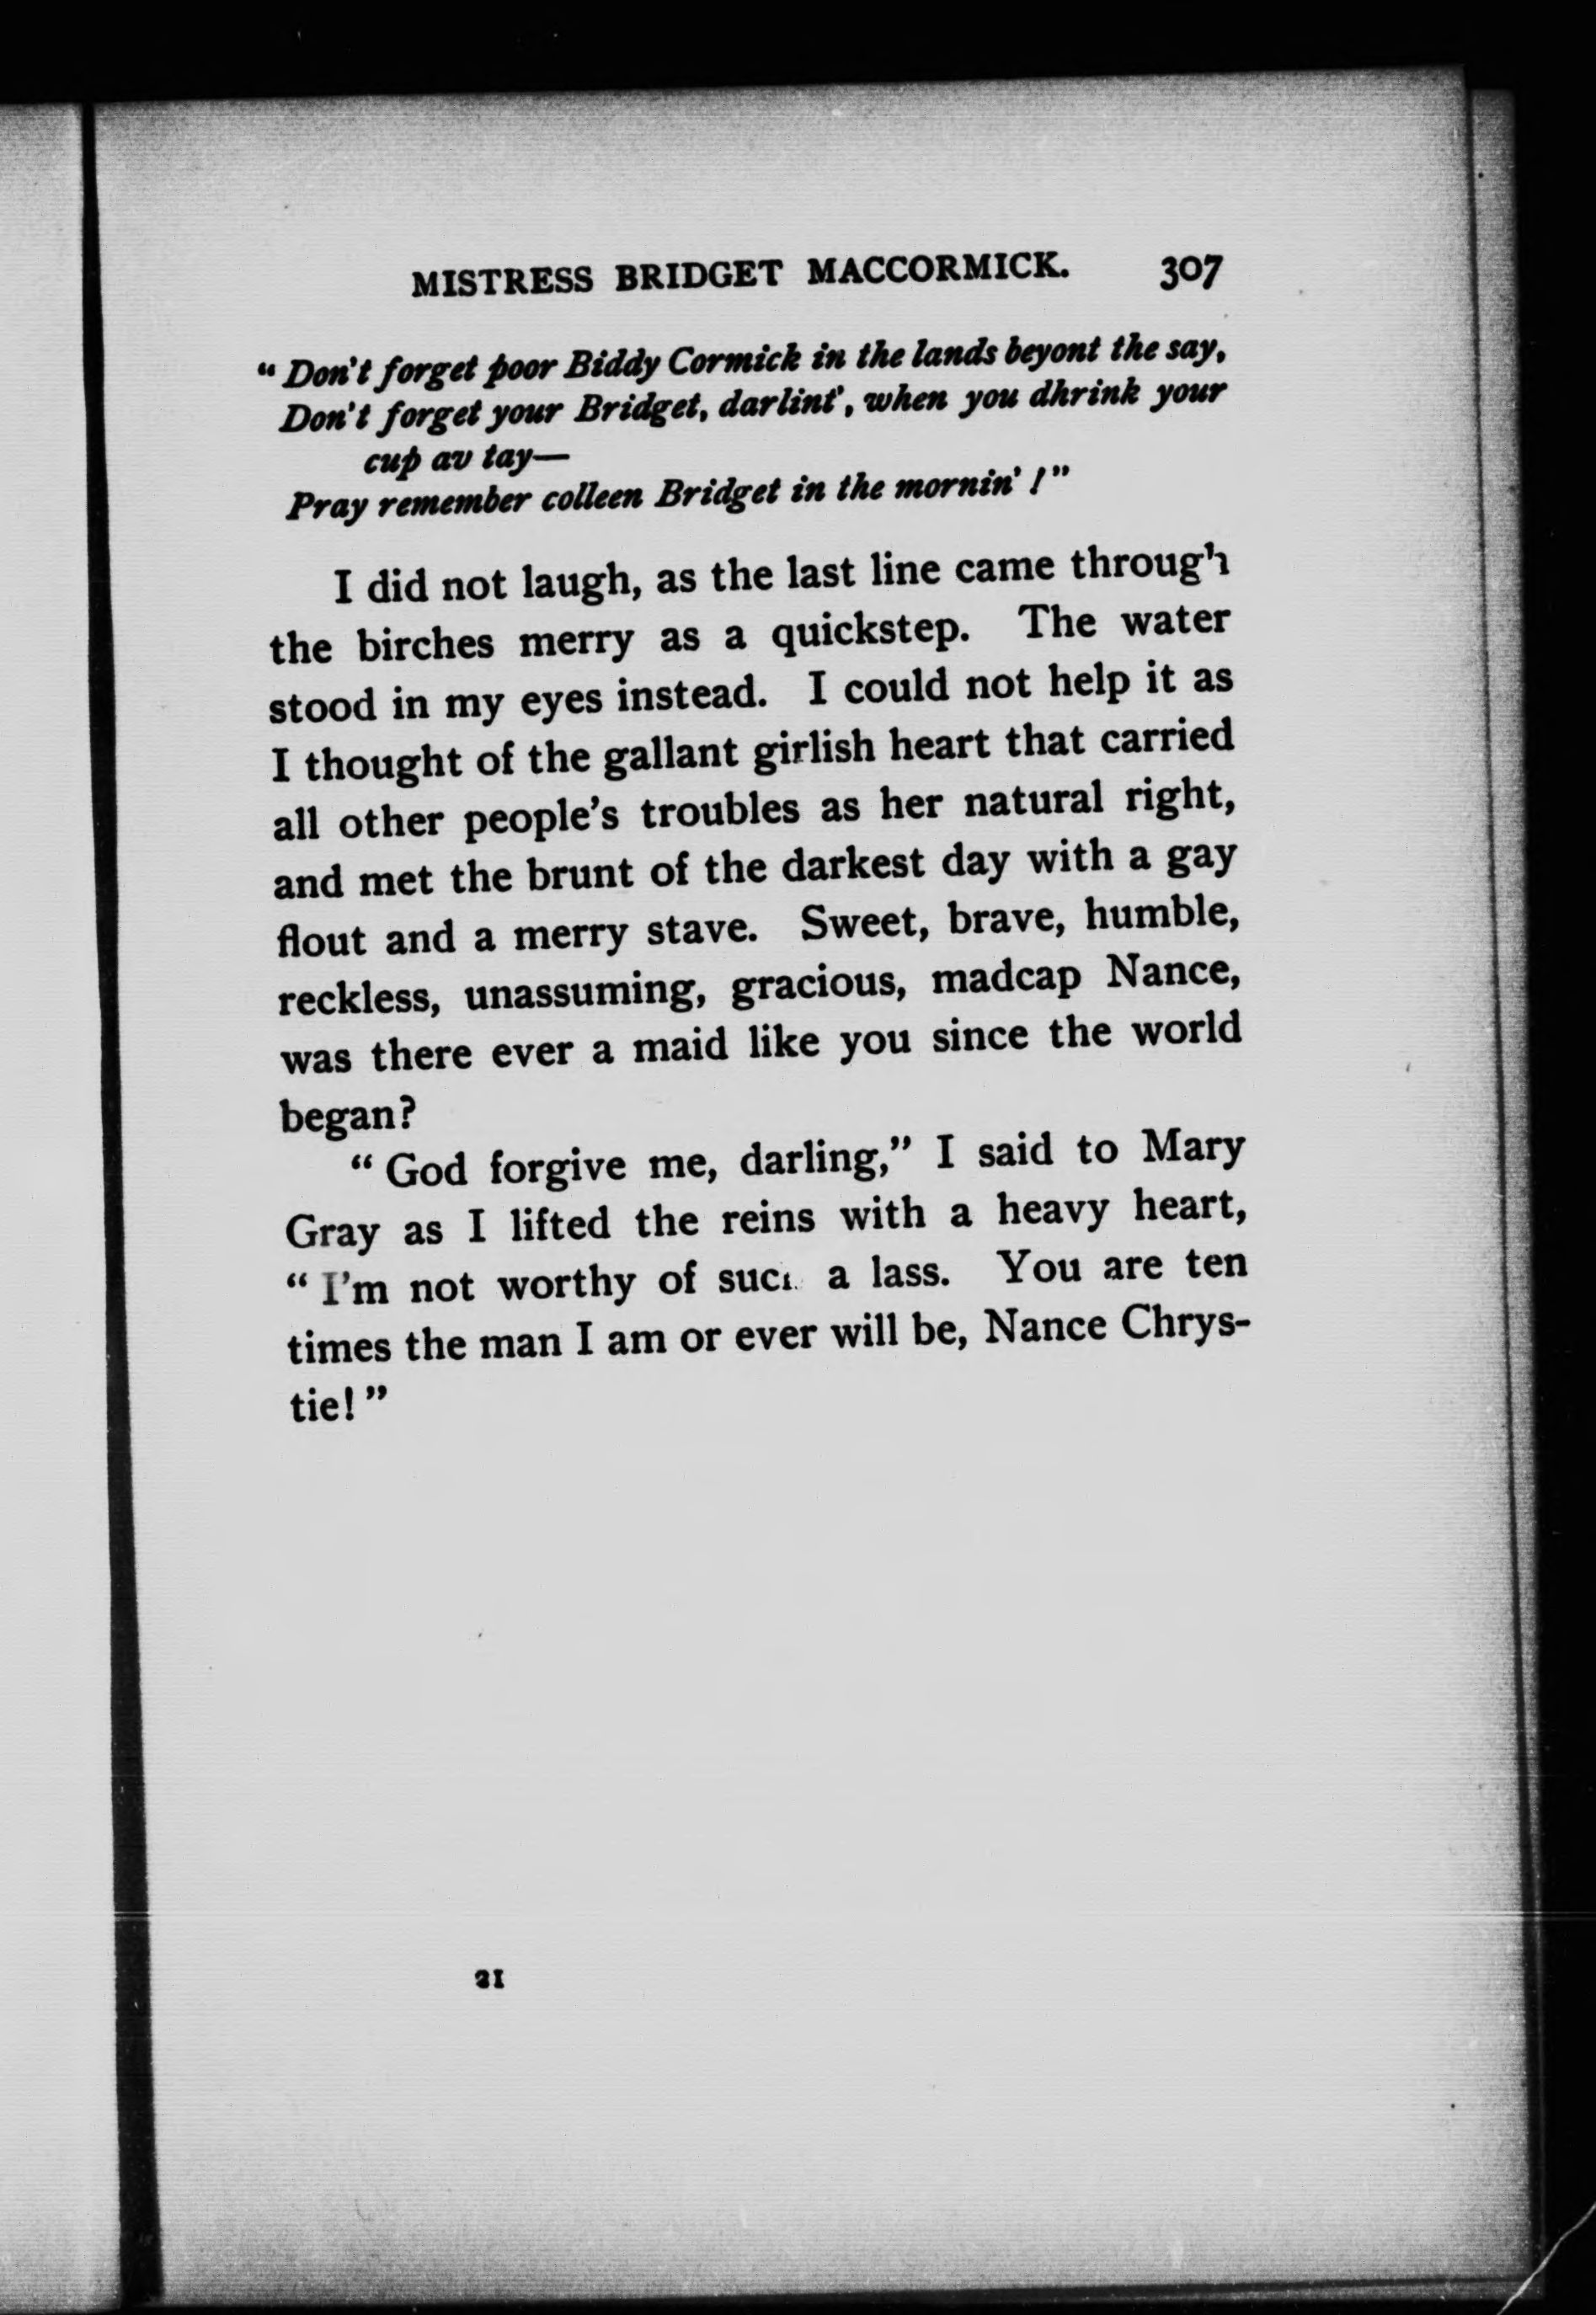 MISTRESS BRIDGET MACCORMICK. 307
“ Don't forget poor Biddy Cormick in the lands beyont the say,
Don't forget your Bridget, darlint', when you dhrink your
cup av tay—
Pray remember colleen Bridget in the mornin' !”
I did not laugh, as the last line came through
the birches merry as a quickstep. The water
stood in my eyes instead. I could not help it as
I thought of the gallant girlish heart that carried
all other people’s troubles as her natural right,
and met the brunt of the darkest day with a gay
flout and a merry stave. Sweet, brave, humble,
reckless, unassuming, gracious, madcap Nance,
was there ever a maid like you since the world
began?
“ God forgive me, darling,” I said to Mary
Gray as I lifted the reins with a heavy heart,
“ I’m not worthy of such a lass. You are ten
times the man I am or ever will be, Nance Chrys-
tie! ”
21